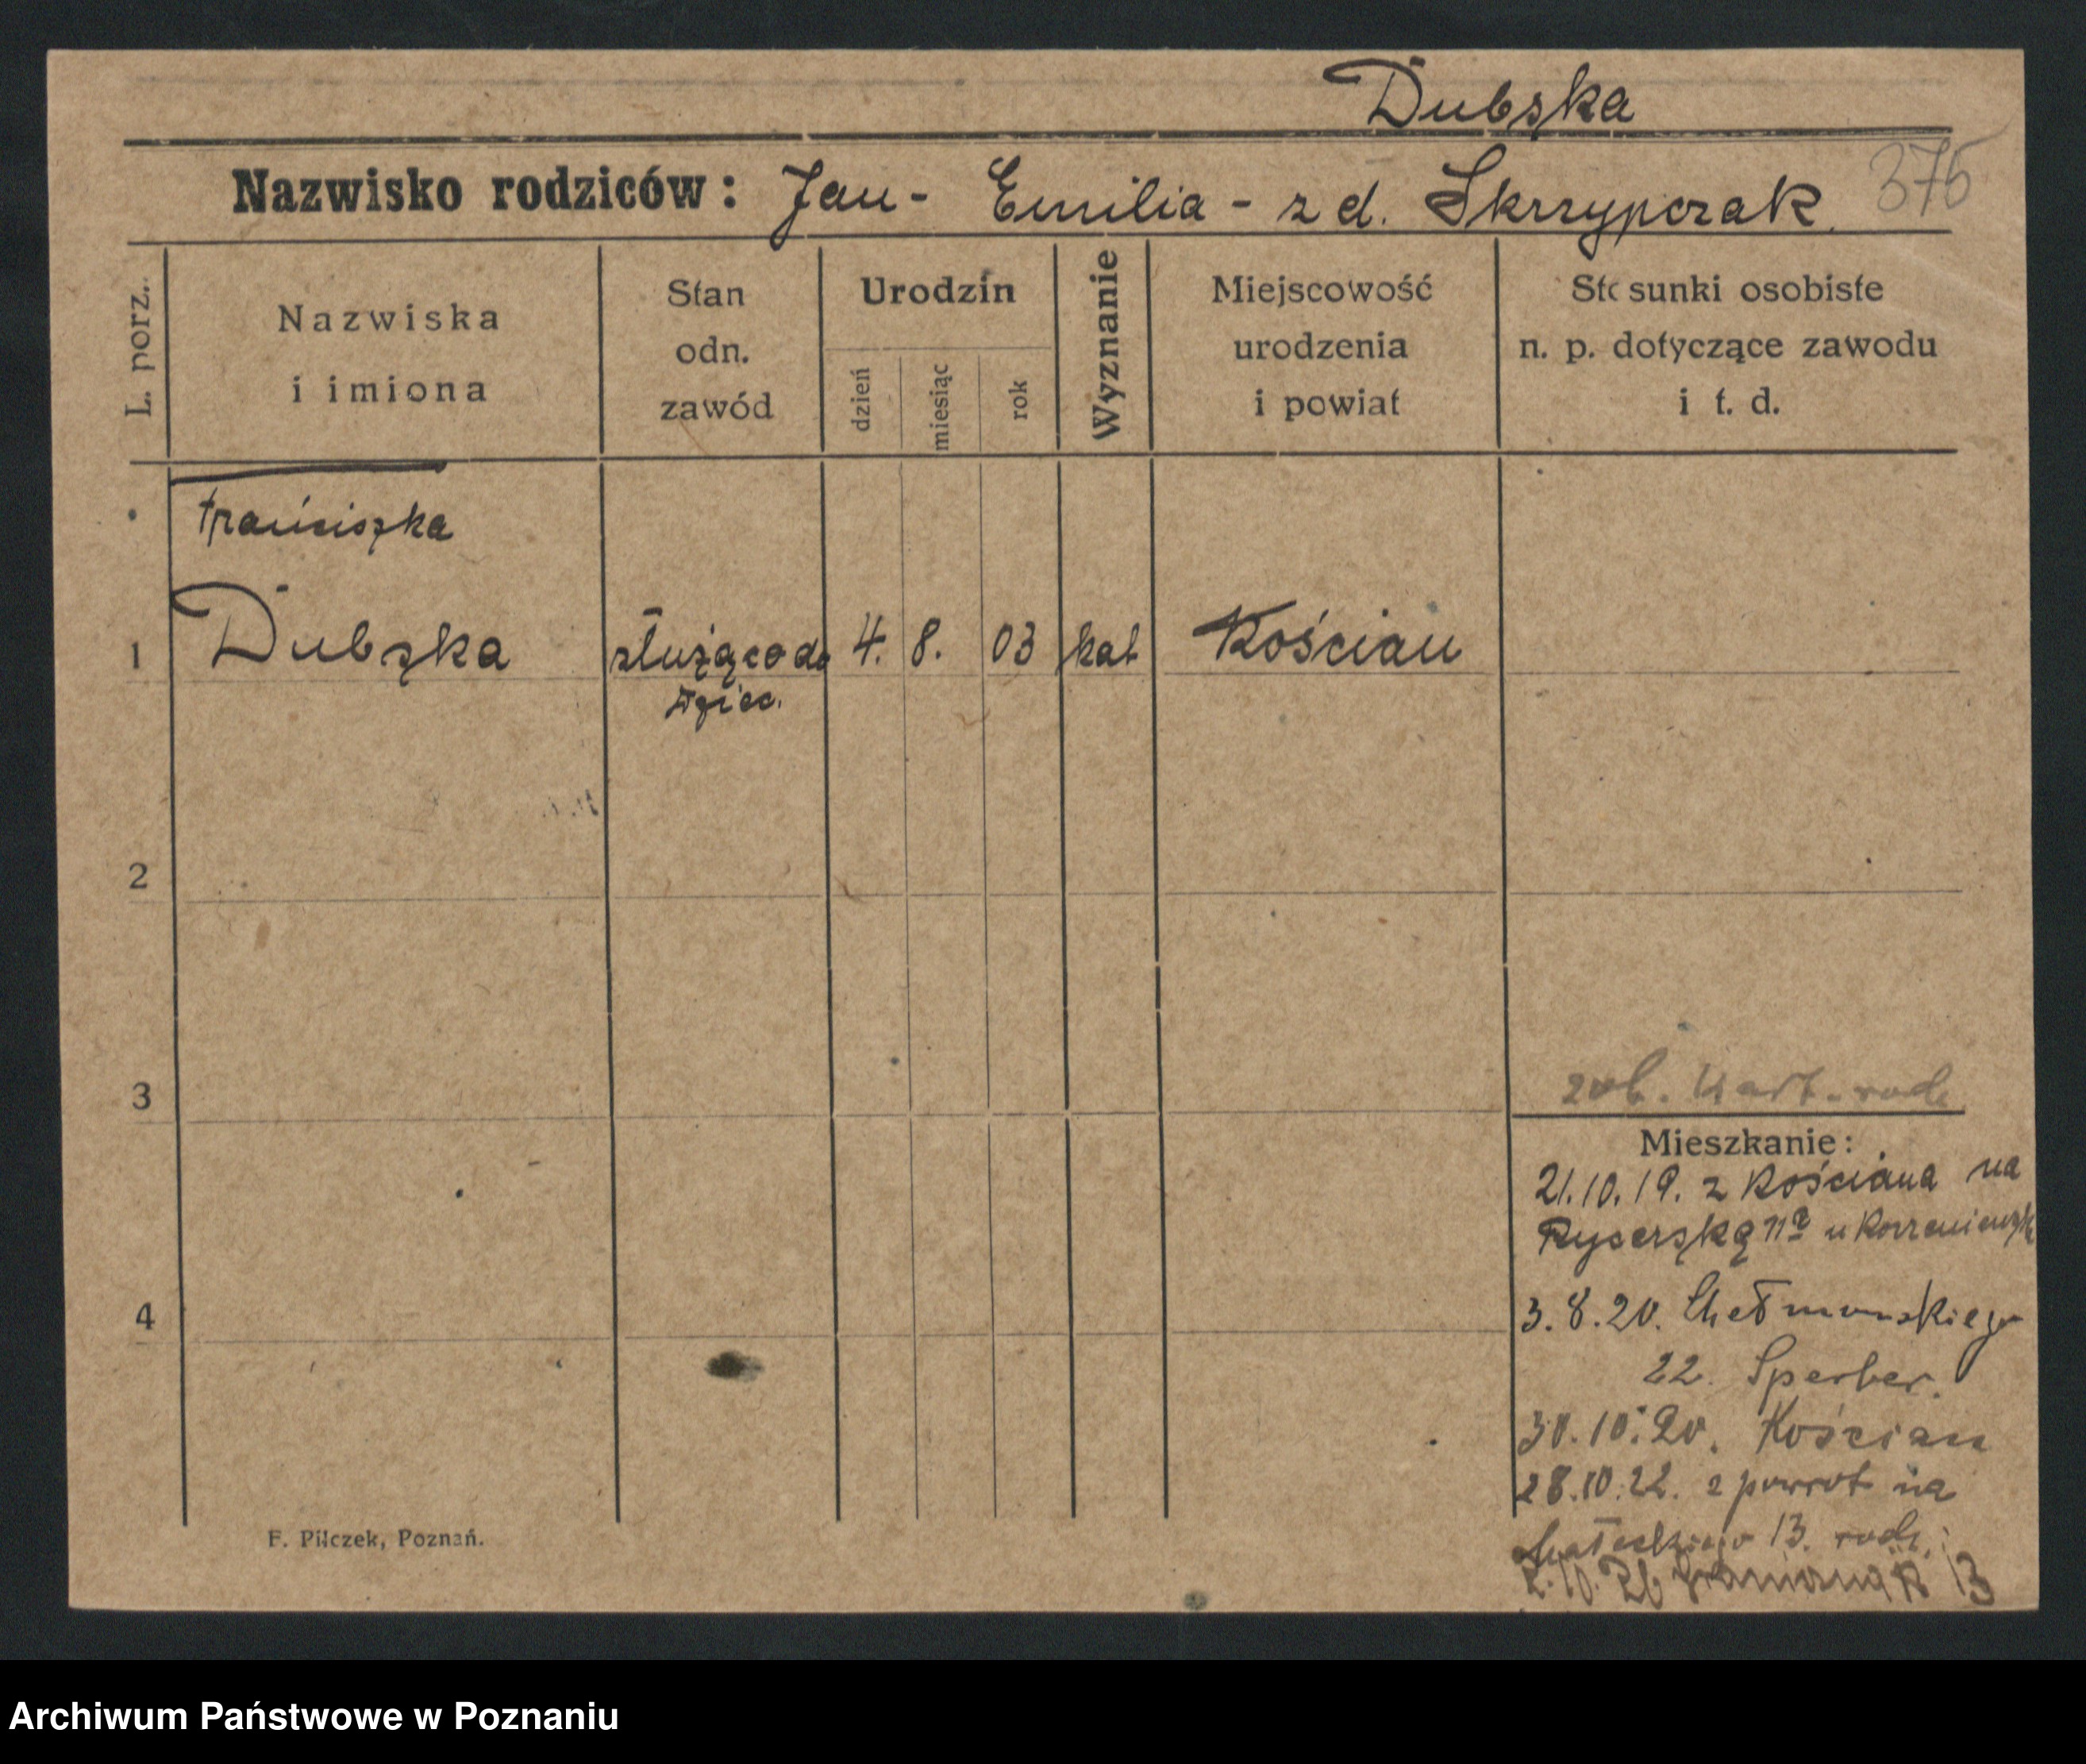 Dubska
Nazwisko rodziców: Jan - Emilia - z d. Skrzypczak
375
L. porz.
Nazwiska
i imiona
Stan
odn.
zawód
Urodzin
dzień
miesiąc
rok
Wyznanie
Miejscowość
urodzenia
i powiat
Stosunki osobiste
n. p. dotyczące zawodu
i t. d.
Franciszka
1 Dubska służąca do 4. 8. 03 kat Kościan
dziec.
2
3
zob. kart. rodz
Mieszkanie:
21.10.19. z Kościana na
Rycerską u
4
3.8.20. Chełmońskiego
22. Sperber.
30.10.20. Kościan
28.10.22. z powrot na
Małeckiego 13. rodz.
2.10.26 13
F. Pilczek, Poznań.
Archiwum Państwowe w Poznaniu